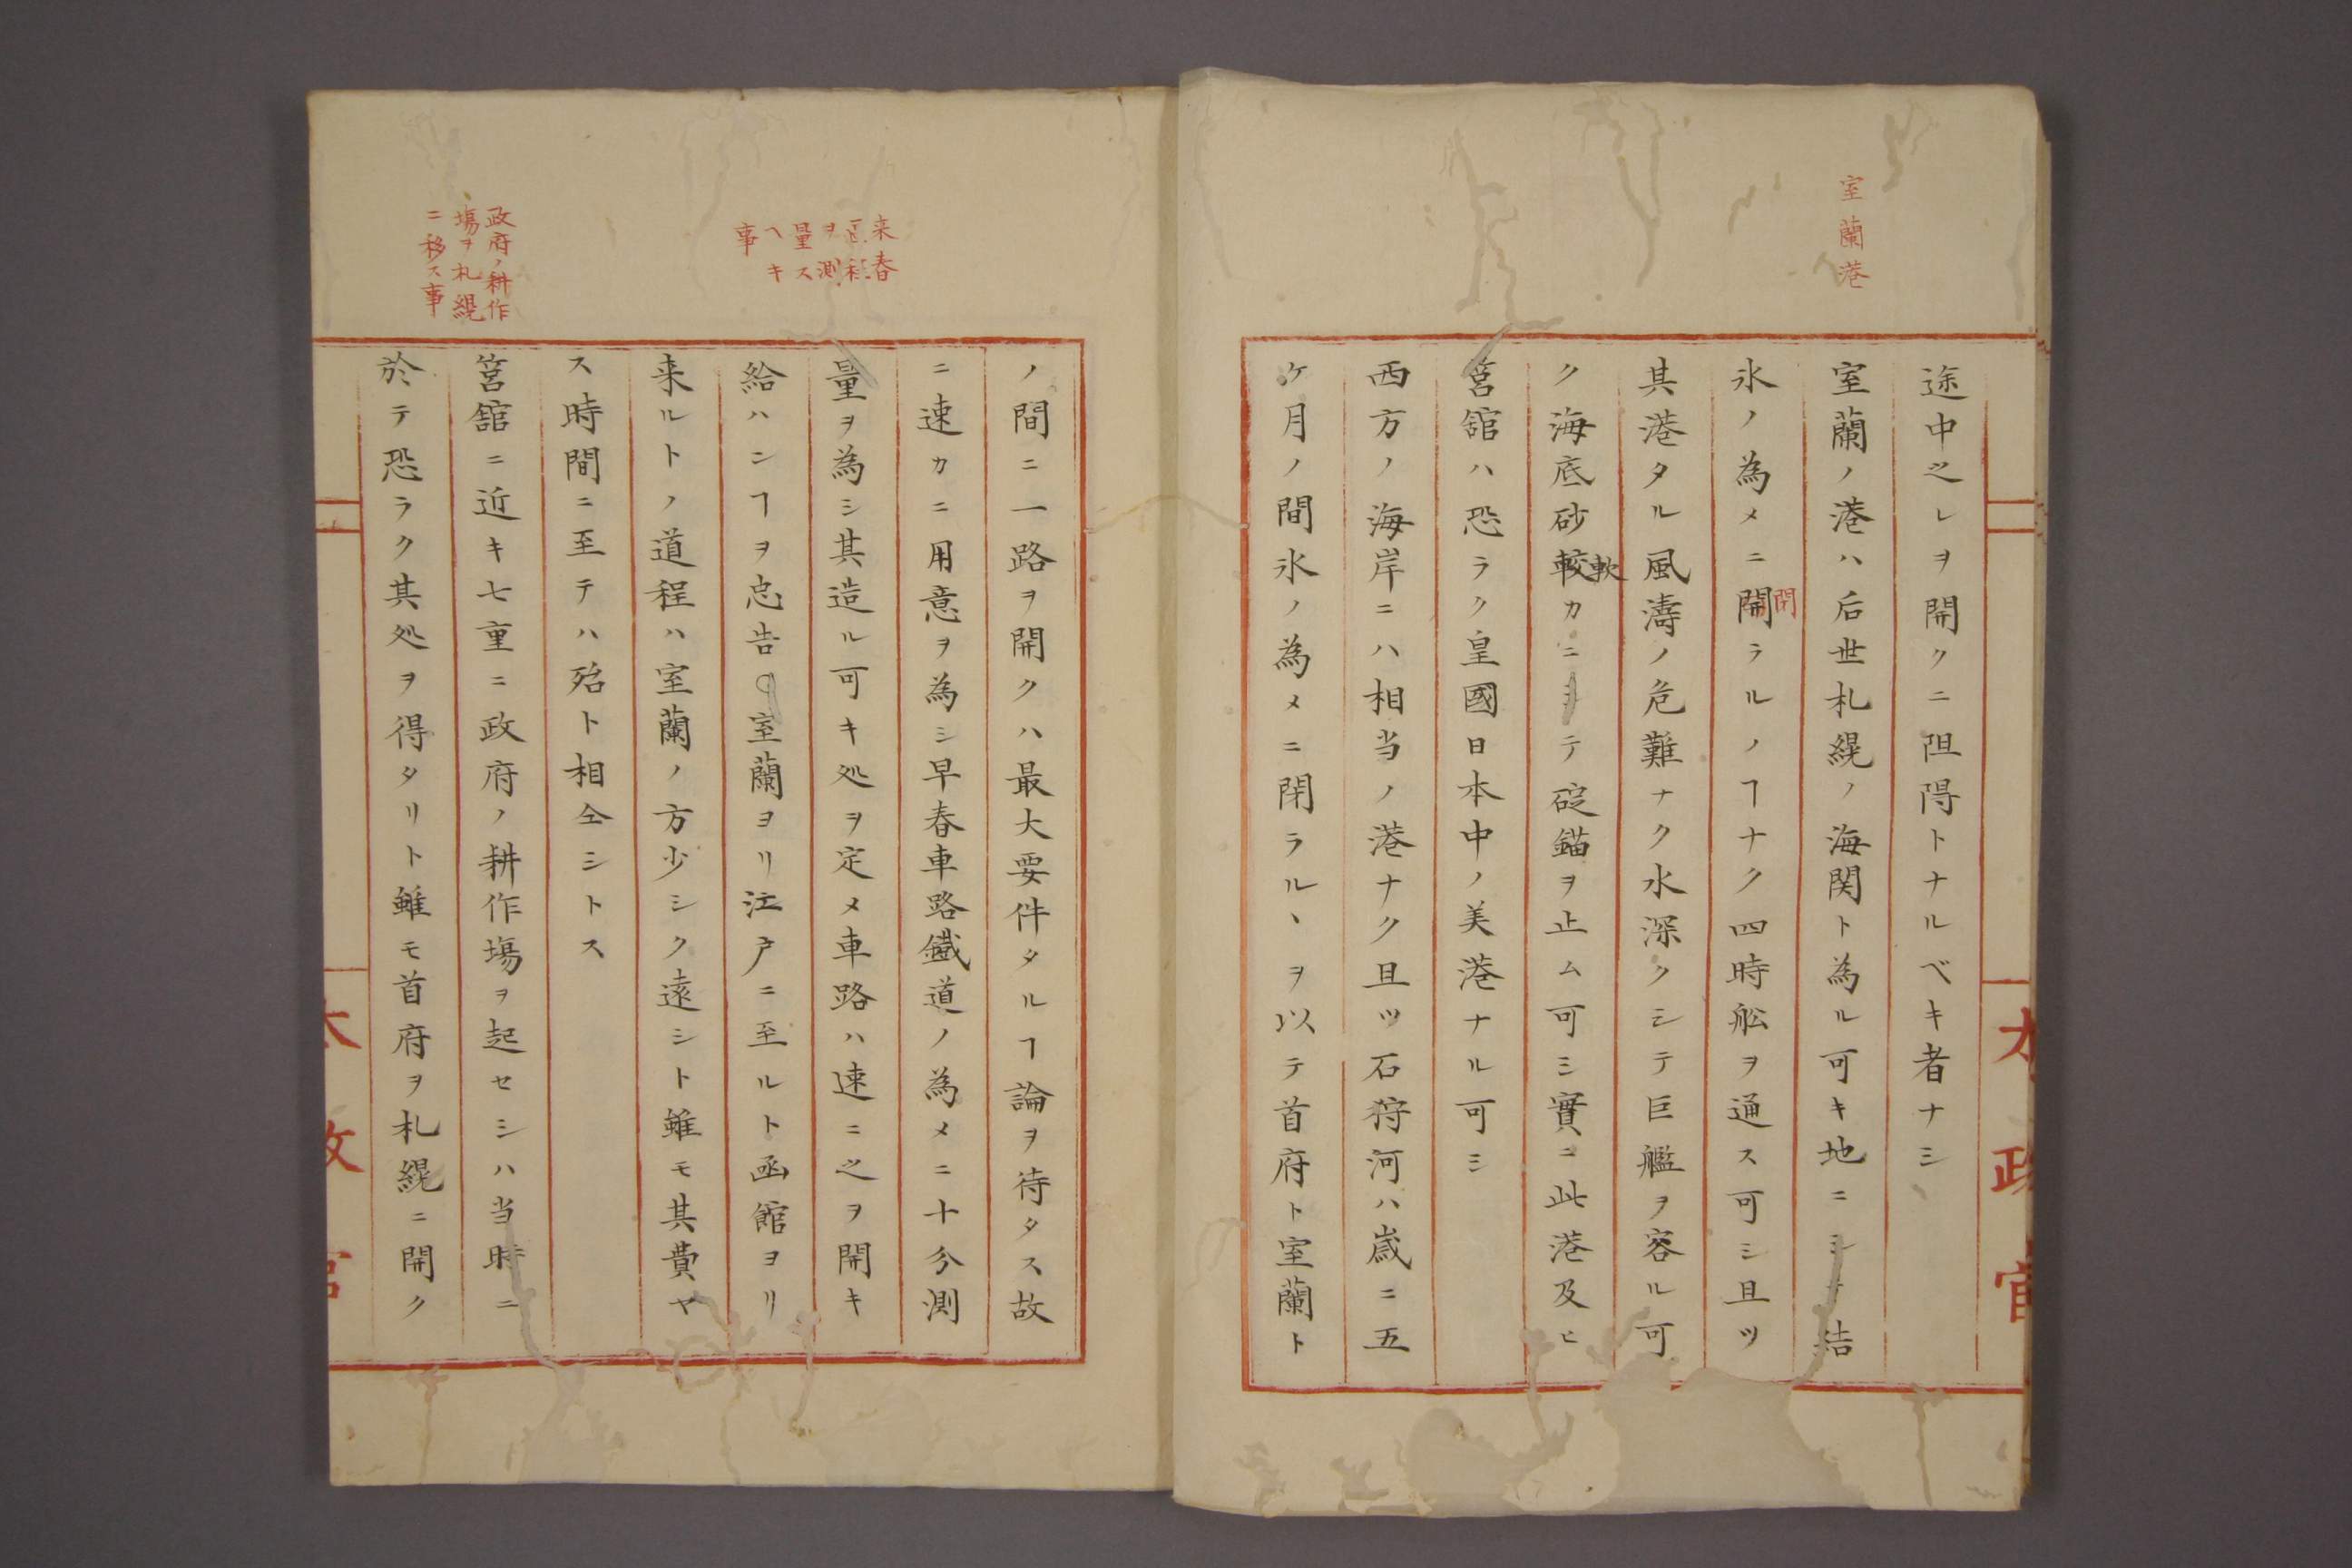 室蘭港
途中之レヲ開クニ阻障トナルベキ者ナシ
室蘭ノ港ハ后世札縨ノ海関ト為ル可キ地ニシテ結
氷ノ為メニ開ラルノヿナク四時舩ヲ通ス可シ且ツ
閉
其港タル風濤ノ危難ナク水深クシテ巨艦ヲ容ル可
ク海底砂較カニシテ碇錨ヲ止ム可シ實ニ此港及ヒ
軟
筥舘ハ恐ラク皇國日本中ノ美港ナル可シ
西方ノ海岸ニハ相当ノ港ナク且ツ石狩河ハ歳ニ五
ケ月ノ間氷ノ為メニ閉ラルヽヲ以テ首府ト室蘭ト
太政官
来春
道程
ヲ測
量ス
ヘキ
事
ノ間ニ一路ヲ開クハ最大要件タルヿ論ヲ待タス故
ニ速カニ用意ヲ為シ早春車路鐵道ノ為メニ十分測
量ヲ為シ其造ル可キ処ヲ定メ車路ハ速ニ之ヲ開キ
給ハンヿヲ忠告○室蘭ヨリ江戸ニ至ルト函館ヨリ
来ルトノ道程ハ室蘭ノ方少シク遠シト雖モ其費ヤ
ス時間ニ至テハ殆ト相仝シトス
政府ノ耕作
塲ヲ札縨
ニ移ス事
筥舘ニ近キ七重ニ政府ノ耕作塲ヲ起セシハ当時ニ
於テ恐ラク其処ヲ得タリト雖モ首府ヲ札縨ニ開ク
太政官